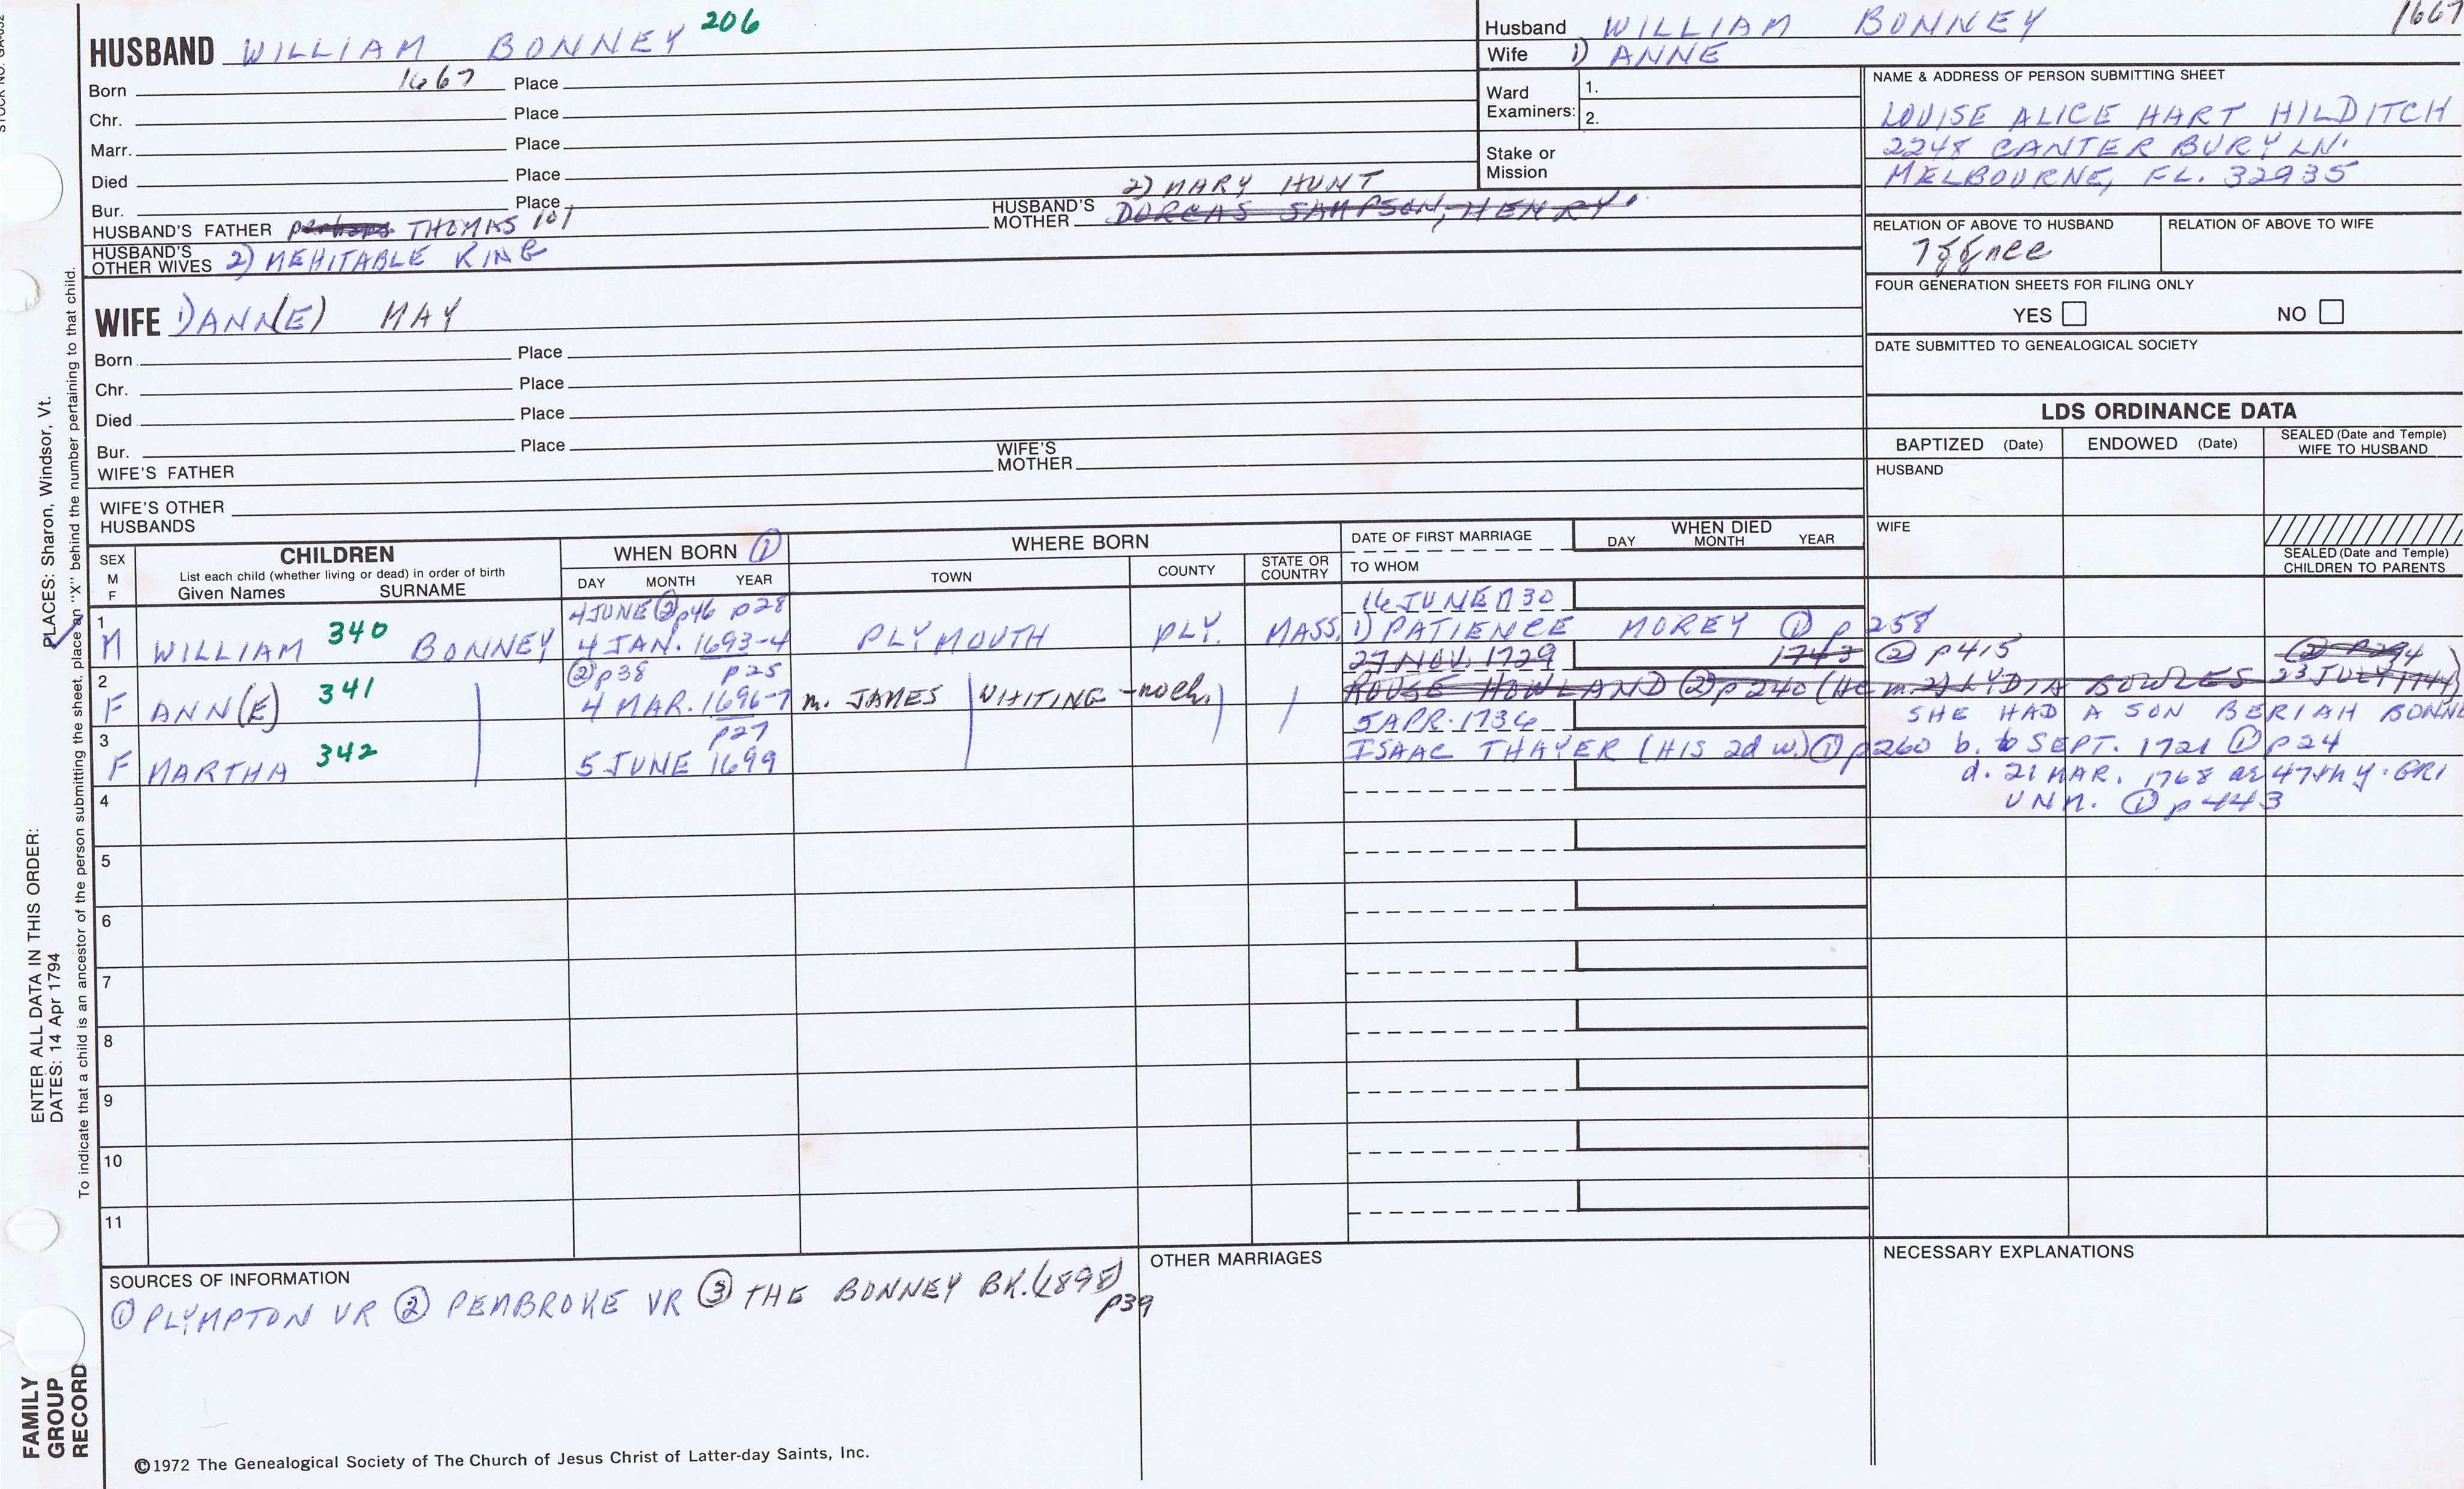 STOCK NO. GA-052
HUSBAND WILLIAM BONNEY 206
Born 1667 Place
Chr. Place
Marr. Place
Died Place
Bur. Place
HUSBAND'S FATHER perhaps THOMAS 101
HUSBAND'S MOTHER 2) MARY HUNT
DORCAS SAMPSON, HENRY
HUSBAND'S OTHER WIVES 2) MEHITABLE KING
WIFE 1) ANN(E) MAY
Born Place
Chr. Place
Died Place
Bur. Place
WIFE'S FATHER
WIFE'S MOTHER
WIFE'S OTHER HUSBANDS
Husband WILLIAM BONNEY 1667
Wife 1) ANNE
Ward Examiners: 1.
2.
Stake or Mission
NAME & ADDRESS OF PERSON SUBMITTING SHEET
LOUISE ALICE HART HILDITCH
2248 CANTERBURY LN.
MELBOURNE, FL. 32935
RELATION OF ABOVE TO HUSBAND
RELATION OF ABOVE TO WIFE
FOUR GENERATION SHEETS FOR FILING ONLY
YES NO
DATE SUBMITTED TO GENEALOGICAL SOCIETY
LDS ORDINANCE DATA
BAPTIZED (Date) ENDOWED (Date) SEALED (Date and Temple) WIFE TO HUSBAND
HUSBAND
WIFE
SEALED (Date and Temple) CHILDREN TO PARENTS
SEX M F
CHILDREN
List each child (whether living or dead) in order of birth
Given Names SURNAME
WHEN BORN ①
DAY MONTH YEAR
WHERE BORN
TOWN COUNTY STATE OR COUNTRY
DATE OF FIRST MARRIAGE
TO WHOM
WHEN DIED
DAY MONTH YEAR
4 JUNE ② p46 p28 16 JUNE 1730
1 M WILLIAM 340 BONNEY 4 JAN. 1693-4 PLYMOUTH PLY. MASS. 1) PATIENCE MOREY ① p 258
② p38 p25 27 NOV. 1729 1743 ② p415 ② p294
2 F ANN(E) 341 4 MAR. 1696-7 m. JAMES WHITING - no ch. ROUSE HOWLAND ② p240 (He m. 2) LYDIA BOWLES 23 JULY 1744)
p27 5 APR. 1736 SHE HAD A SON BERIAH BONNE
3 F MARTHA 342 5 JUNE 1699 ISAAC THAYER (HIS 2d w.) ① p260 b. to SEPT. 1721 ① p24
d. 21 MAR. 1768 ae 47th y. GR1
UNM. ① p443
4
5
6
7
8
9
10
11
SOURCES OF INFORMATION
① PLYMPTON VR ② PEMBROKE VR ③ THE BONNEY BK. (1898) p39
OTHER MARRIAGES
NECESSARY EXPLANATIONS
©1972 The Genealogical Society of The Church of Jesus Christ of Latter-day Saints, Inc.
FAMILY GROUP RECORD
ENTER ALL DATA IN THIS ORDER:
DATES: 14 Apr 1794
PLACES: Sharon, Windsor, Vt.
To indicate that a child is an ancestor of the person submitting the sheet, place an "X" behind the number pertaining to that child.